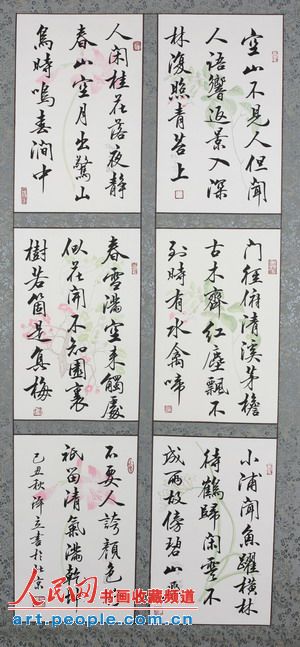 空山不見人但聞
人語響返景入深
林復照青苔上
人闲桂花落夜静
春山空月出驚山
鳥時鳴春澗中
門徑俯清溪茅檐
古木齊紅塵飄不
到時有水禽啼
春雪滿空来觸處
似花開不知園裏
樹若箇是真梅
小浦聞魚躍横林
待鶴歸闲雲不
成雨故傍碧山飛
不要人誇顏色
祇留清氣滿乾坤
己丑秋澤立書於北京
人民网 书画收藏频道
art.people.com.cn